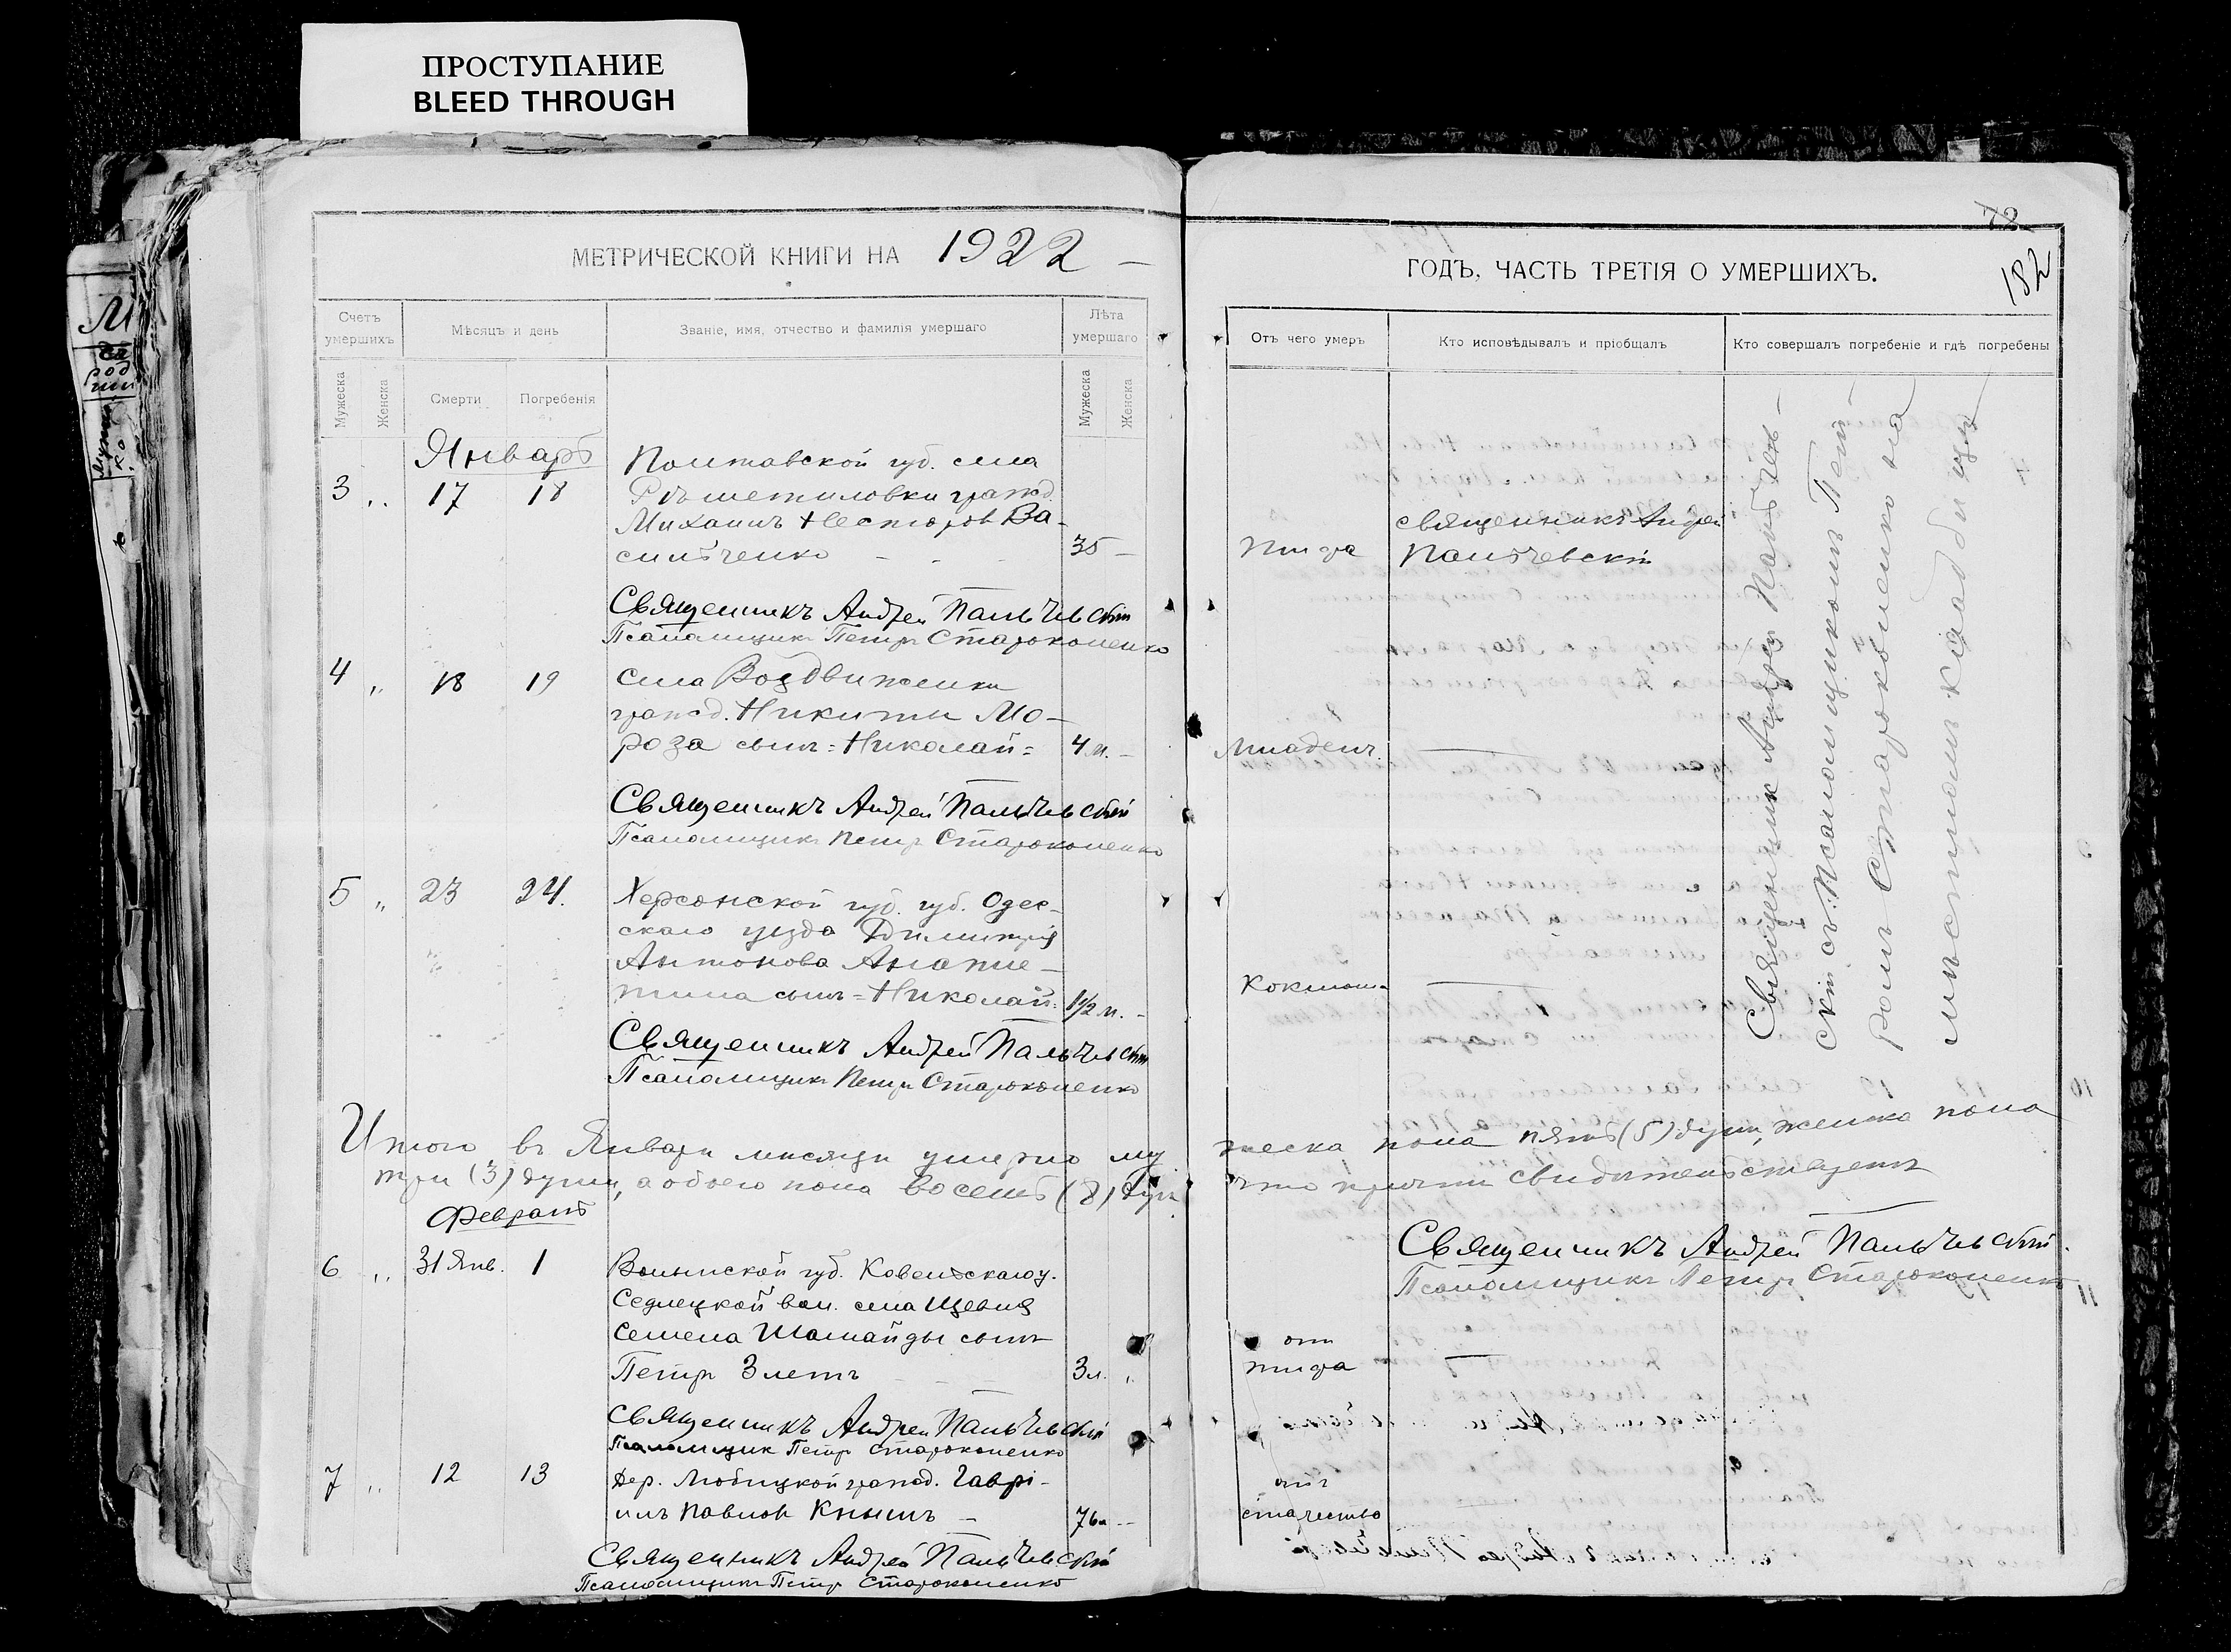 ПРОСТУПАНИЕ
BLEED THROUGH
МЕТРИЧЕСКОЙ КНИГИ НА 1922
Счетъ умершихъ
Мѣсяцъ и день
Званіе, имя, отчество и фамилія умершаго
Лѣта умершаго
Мужеска
Женска
Смерти
Погребенія
Мужеска
Женска
Январь
Полтавской губ. села
3 „ 17 18 Рѣшетиловки гражд.
Михаилъ Несторов Ва-
сильченко - - - 35 —
Священникъ Андрей Пальчевскій
Псаломщикъ Петръ Староконенко
4 „ 18 19 Села Воздвиженки
гражд. Никиты Мо-
роза сынъ = Николай = 4 м. -
Священникъ Андрей Пальчевскій
Псаломщикъ Петръ Староконенко
5 „ 23 24. Херсонской губ. губ. Одес-
скаго уезда Димитрія
Антонова
сынъ = Николай = 1½ м. -
Священникъ Андрей Пальчевскій
Псаломщикъ Петръ Староконенко
Итого въ Январѣ мѣсяцѣ умерло му
три (3) души, а обоего пола восемь (8) душ
Февраль
6 „ 31 Янв. 1 Волынской губ. Ковельскаго у.
Седлецкой вол. села
Семена сынъ
Петръ 3 летъ 3 л. „
Священникъ Андрей Пальчевскій
Псаломщик Петръ Староконенко
7 „ 12 13 Дер. Любицкой гражд. Гаврі-
илъ Павлов Кнышъ — 76 л --
Священникъ Андрей Пальчевскій
Псаломщикъ Петръ Староконенко
72
182
ГОДЪ, ЧАСТЬ ТРЕТІЯ О УМЕРШИХЪ.
Отъ чего умеръ
Кто исповѣдывалъ и пріобщалъ
Кто совершалъ погребеніе и гдѣ погребены
священникъ Андрей
тифа Пальчевскій
младенч.
коклюш
Священник Андрей Пальчев-
скій съ Псаломщикомъ Пет-
ромъ Староконенко на
мѣстномъ кладбищѣ
жеска пола пять (5) душъ, женска пола
что причтъ свидѣтельствуетъ
Священникъ Андрей Пальчевскій.
Псаломщикъ Петръ Староконенко
отъ
тифа
отъ
старчества